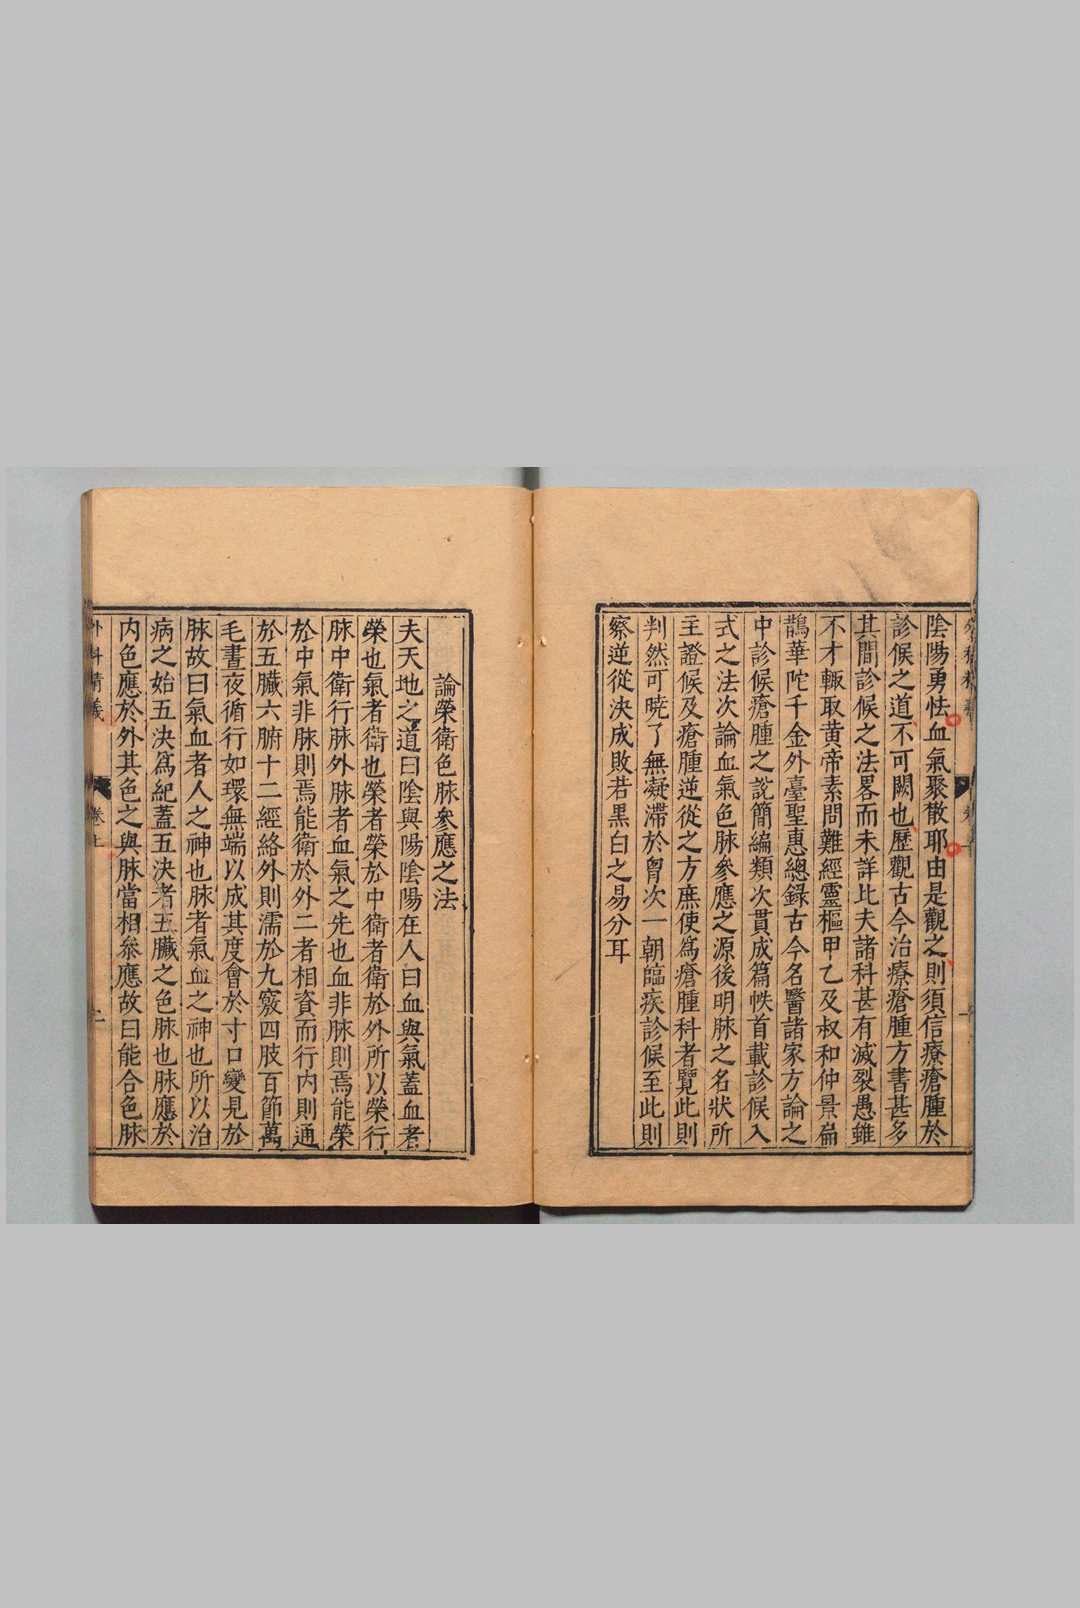 陰陽勇怯血氣聚散耶由是觀之則須信療瘡腫於
診候之道不可闕也歷觀古今治療瘡腫方書甚多
其間診候之法畧而未詳比夫諸科甚有滅裂愚雖
不才輙取黄帝素問難經靈樞甲乙及叔和仲景扁
鵲華陀千金外臺聖惠總録古今名醫諸家方論之
中診候瘡腫之說簡編類次貫成篇帙首載診候入
式之法次論血氣色脉參應之源後明脉之名狀所
主證候及瘡腫逆從之方庶使爲瘡腫科者覽此則
判然可曉了無凝滯於胷次一朝臨疾診候至此則
察逆從決成敗若黒白之易分耳
論榮衛色脉參應之法
夫天地之道曰陰與陽陰陽在人曰血與氣蓋血者
榮也氣者衛也榮者榮於中衛者衛於外所以榮行
脉中衛行脉外脉者血氣之先也血非脉則焉能榮
於中氣非脉則焉能衛於外二者相資而行内則通
於五臟六腑十二經絡外則濡於九竅四肢百節萬
毛晝夜循行如環無端以成其度會於寸口變見於
脉故曰氣血者人之神也脉者氣血之神也所以治
病之始五決爲紀蓋五決者五臟之色脉也脉應於
内色應於外其色之與脉當相參應故曰能合色脉
外科精義 卷上